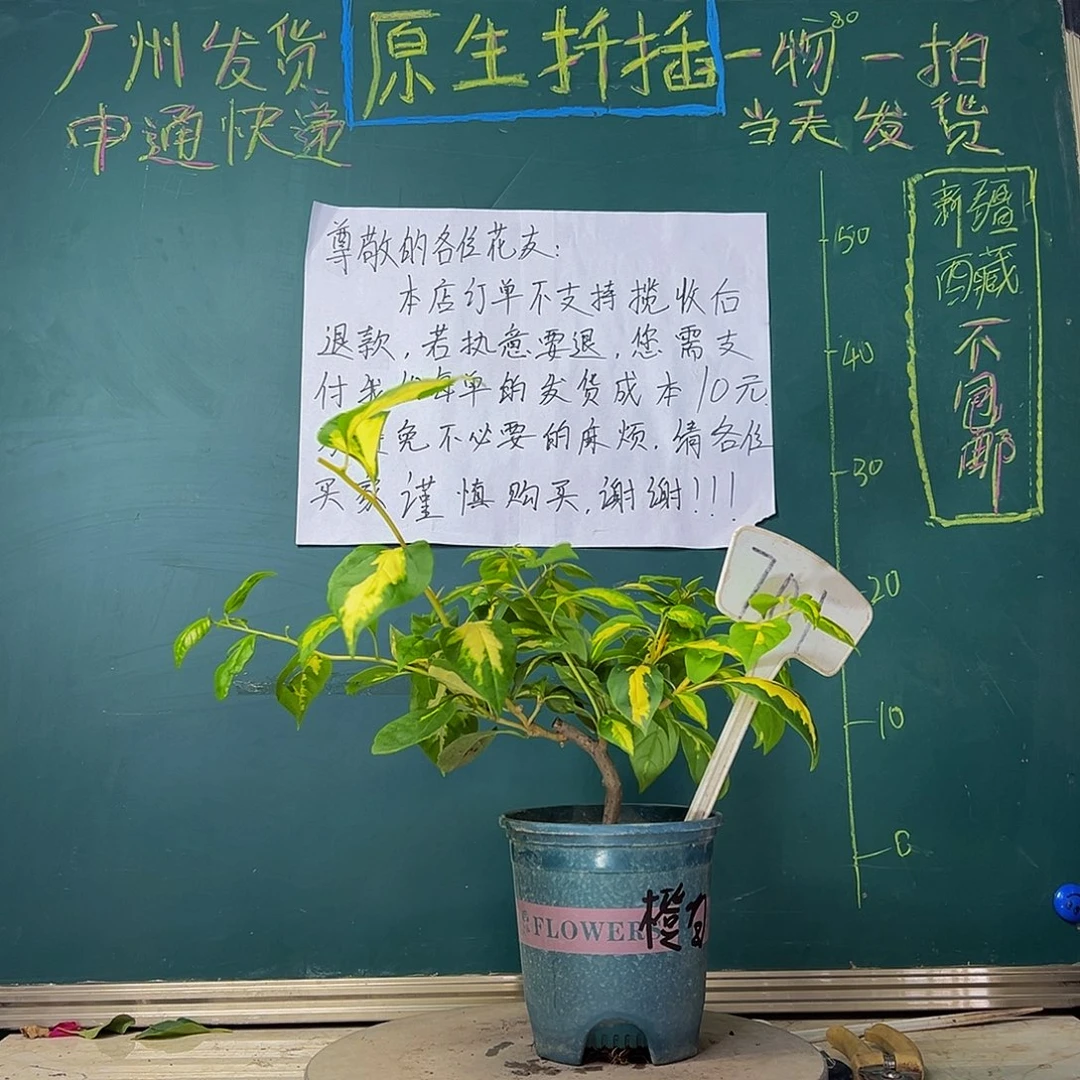 广州发货
申通快递
原生扦插
一物一拍
80
当天发货
新疆
西藏
不包邮
尊敬的各位花友:
本店订单不支持揽收后
退款,若执意要退,您需支
付 每单的发货成本10元.
免不必要的麻烦.请各位
买家谨慎购买,谢谢!!!
50
40
30
20
10
0
FLOWERS
橙